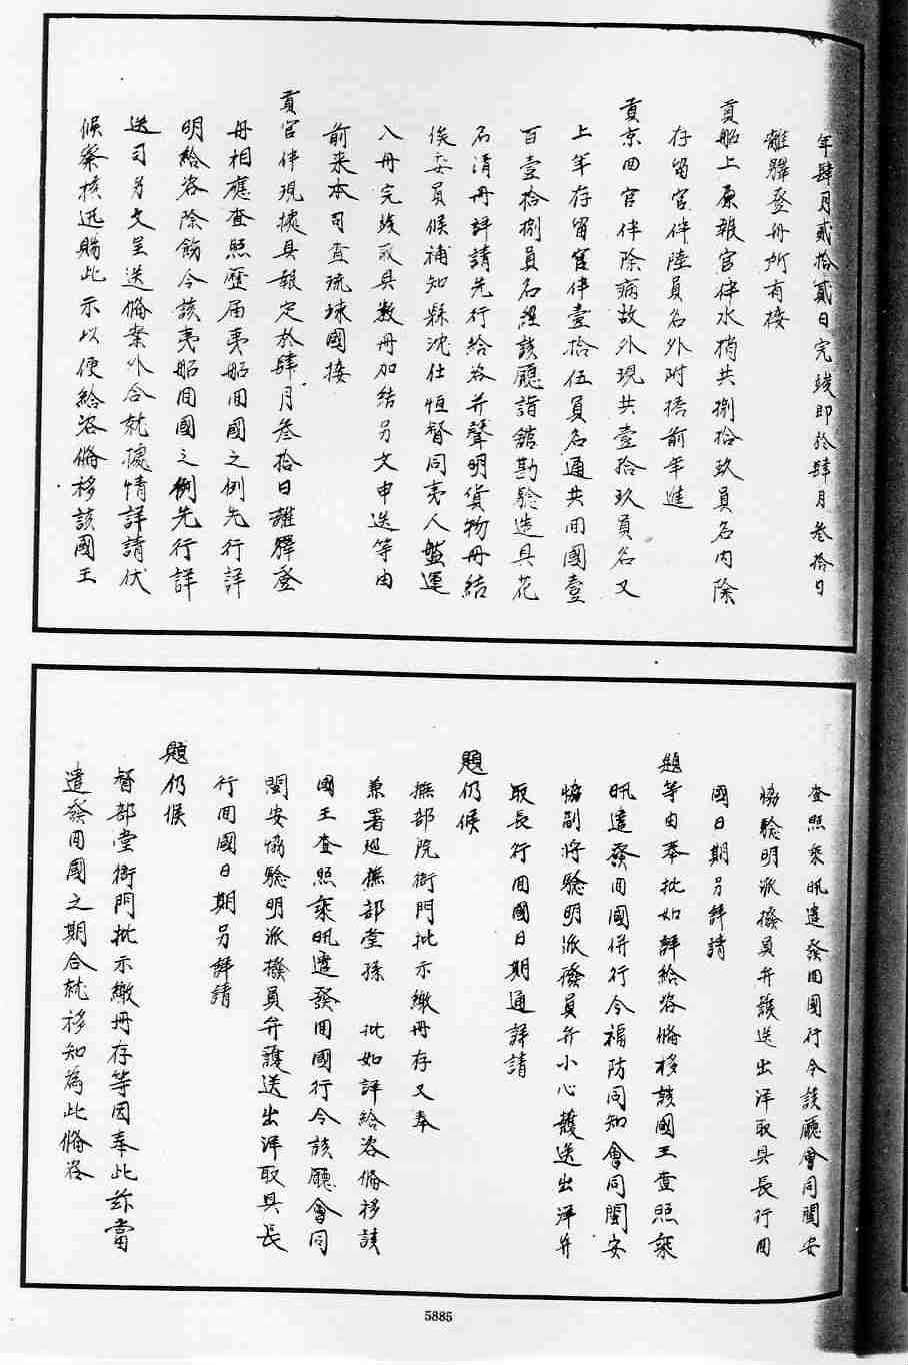 年肆月貳拾貳日完竣即於肆月叁拾日
離驛登舟所有接
貢船上原報官伴水梢共捌拾玖員名内除
存留官伴陸員名外附搭前年進
貢京回官伴除病故外現共壹拾玖員名又
上年存留官伴壹拾伍員名通共回國壹
百壹拾捌員名經該廳詣舘勘驗造具花
名清冊詳請先行給咨并聲明貨物冊結
俟委員候補知縣沈仕恒督同夷人盤運
入舟完竣取具數冊加結另文申送等由
前来本司查琉球國接
貢官伴現據具報定於肆月叁拾日離驛登
舟相應查照歷届夷船回國之例先行詳
明給咨除飭令該夷船回國之例先行詳
送司另文呈送俻案外合就據情詳請伏
候察核迅賜批示以便給咨俻移該國王
查照來帆遣發回國行令該廳會同閩安
協驗明派撥員弁護送出洋取具長行回
國日期另詳請
題等由奉批如詳給咨俻移該國王查照來
帆遣發回國併行令福防同知會同閩安
協副將驗明派撥員弁小心護送出洋并
取長行回國日期通詳請
題仍候
撫部院衙門批示繳冊存又奉
兼署巡撫部堂孫 批如詳給咨俻移該
國王查照來帆遣發回國行令該廳會同
閩安協驗明派撥員弁護送出洋取具長
行回國日期另詳請
題仍候
督部堂衙門批示繳冊存等因奉此茲當
遣發回國之期合就移知為此俻咨
5885